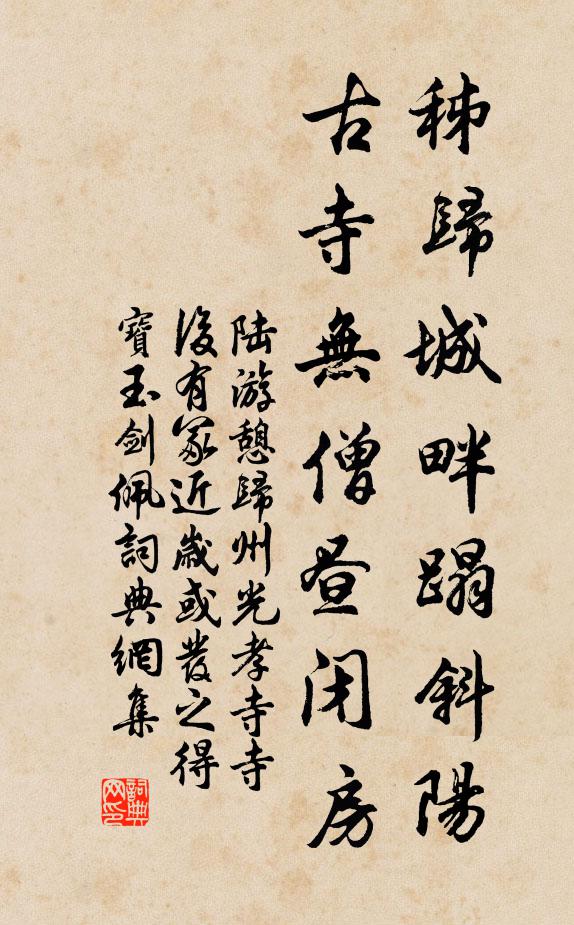 秭歸城畔蹋斜陽
古寺無僧晝閉房
陆游憩歸州光孝寺寺
後有冢近歲或發之得
寶玉劍佩詞典網集
詞典
网印